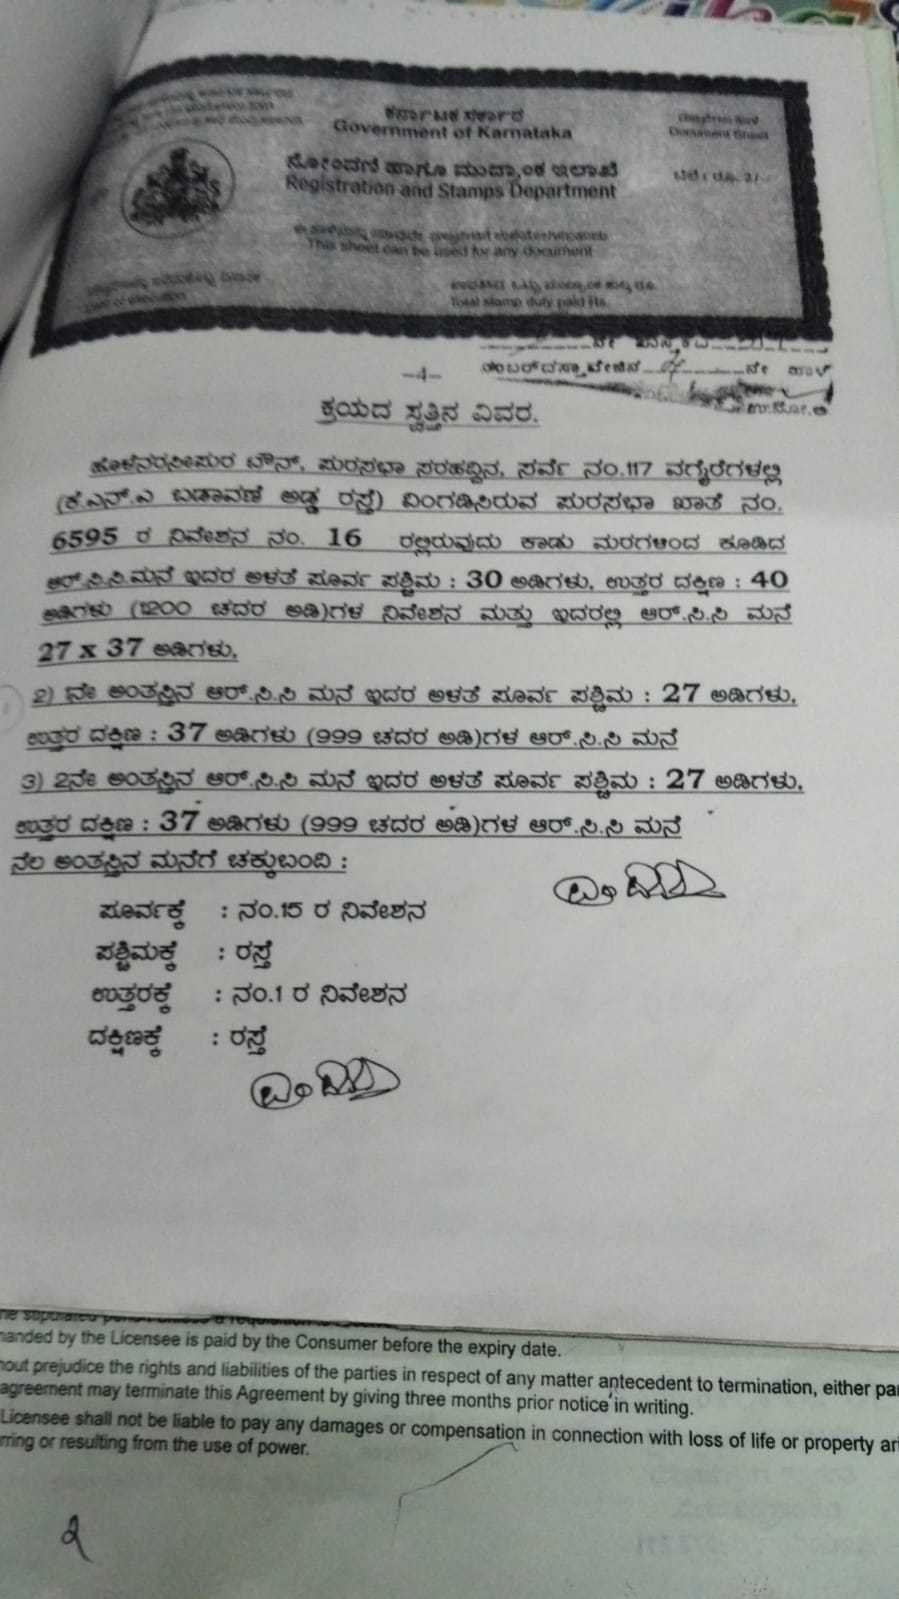 ಕರ್ನಾಟಕ ಸರ್ಕಾರ
Government of Karnataka
Document Sheet
ನೋಂದಣಿ ಹಾಗೂ ಮುದ್ರಾಂಕ ಇಲಾಖೆ
Registration and Stamps Department
ಬೆಲೆ : ರೂ. 2/-
This sheet can be used for any document
Total stamp duty paid Rs.
-4-
ಕ್ರಯದ ಸ್ವತ್ತಿನ ವಿವರ.
ಹೊಳೆನರಸೀಪುರ ಟೌನ್, ಪುರಸಭಾ ಸರಹದ್ದಿನ, ಸರ್ವೆ ನಂ.117 ವಗೈರೆಗಳಲ್ಲಿ
(ಕೆ.ಎನ್.ಎ ಬಡಾವಣೆ ಅಡ್ಡ ರಸ್ತೆ) ವಿಂಗಡಿಸಿರುವ ಪುರಸಭಾ ಖಾತೆ ನಂ.
6595 ರ ನಿವೇಶನ ನಂ. 16 ರಲ್ಲಿರುವುದು ಕಾಡು ಮರಗಳಿಂದ ಕೂಡಿದ
ಆರ್.ಸಿ.ಸಿ.ಮನೆ ಇದರ ಅಳತೆ ಪೂರ್ವ ಪಶ್ಚಿಮ : 30 ಅಡಿಗಳು, ಉತ್ತರ ದಕ್ಷಿಣ : 40
ಅಡಿಗಳು (1200 ಚದರ ಅಡಿ)ಗಳ ನಿವೇಶನ ಮತ್ತು ಇದರಲ್ಲಿ ಆರ್.ಸಿ.ಸಿ ಮನೆ
27 x 37 ಅಡಿಗಳು,
2) ನೇ ಅಂತಸ್ತಿನ ಆರ್.ಸಿ.ಸಿ ಮನೆ ಇದರ ಅಳತೆ ಪೂರ್ವ ಪಶ್ಚಿಮ : 27 ಅಡಿಗಳು,
ಉತ್ತರ ದಕ್ಷಿಣ : 37 ಅಡಿಗಳು (999 ಚದರ ಅಡಿ)ಗಳ ಆರ್.ಸಿ.ಸಿ ಮನೆ
3) 2ನೇ ಅಂತಸ್ತಿನ ಆರ್.ಸಿ.ಸಿ ಮನೆ ಇದರ ಅಳತೆ ಪೂರ್ವ ಪಶ್ಚಿಮ : 27 ಅಡಿಗಳು,
ಉತ್ತರ ದಕ್ಷಿಣ : 37 ಅಡಿಗಳು (999 ಚದರ ಅಡಿ)ಗಳ ಆರ್.ಸಿ.ಸಿ ಮನೆ
ನೆಲ ಅಂತಸ್ತಿನ ಮನೆಗೆ ಚಕ್ಕುಬಂದಿ :
ಪೂರ್ವಕ್ಕೆ : ನಂ.15 ರ ನಿವೇಶನ
ಪಶ್ಚಿಮಕ್ಕೆ : ರಸ್ತೆ
ಉತ್ತರಕ್ಕೆ : ನಂ.1 ರ ನಿವೇಶನ
ದಕ್ಷಿಣಕ್ಕೆ : ರಸ್ತೆ
manded by the Licensee is paid by the Consumer before the expiry date.
hout prejudice the rights and liabilities of the parties in respect of any matter antecedent to termination, either par
agreement may terminate this Agreement by giving three months prior notice in writing.
Licensee shall not be liable to pay any damages or compensation in connection with loss of life or property ari
rring or resulting from the use of power.
2